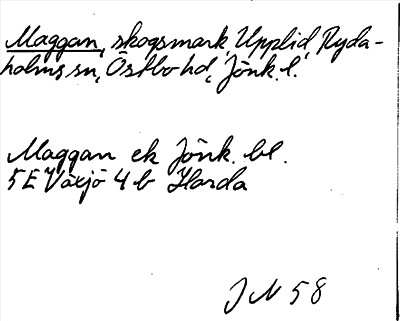 Maggan, skogsmark, Upplid, Ryda-
holms sn, Östbo hd, Jönk. l.
Maggan ek Jönk. bl.
5E Växjö 4 b Horda
J N 58